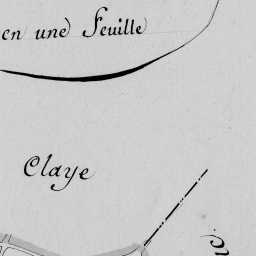 en une Feuille
Claye